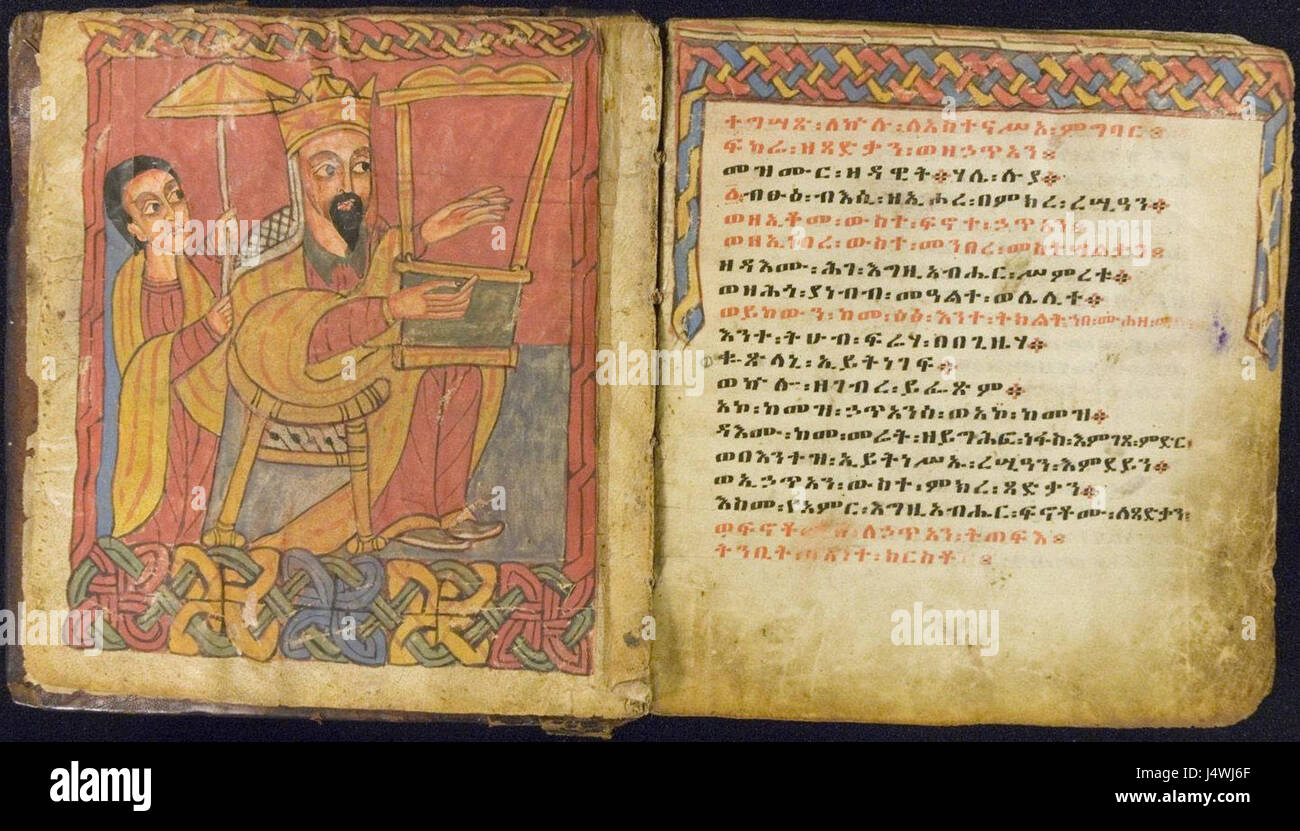 ተግሣጽ፡ለኵሉ፡ለእከተናሥእ፡ምግባር፨
ፍካሬ፡ዘጻድቃን፡ወዘኃጥአን፨
መዝሙር፡ዘዳዊት፨ሃሌ፡ሉያ፨
ብፁዕ፡ብእሲ፡ዘኢሖረ፡በምክረ፡ረሢዓን፨
ወዘኢቆመ፡ውስተ፡ፍኖተ፡ኃጥአን፨
ወዘኢነበረ፡ውስተ፡መንበረ፡መስተሣልቃን፨
ዘዳእሙ፡ሕገ፡እግዚአብሔር፡ሥምረቱ፨
ወዘሕጎ፡ያነብብ፡መዓልተ፡ወሌሊተ፨
ወይከውን፡ከመ፡ዕፅ፡እንተ፡ትክልት፡ኀበ፡ሙሐዘ፡
እንተ፡ትሁብ፡ፍሬሃ፡በበጊዜሃ፨
ቈጽላኒ፡ኢይትነገፍ፨
ወኵሎ፡ዘገብረ፡ይፌጽም፨
አኮ፡ከመዝ፡ኃጥአንሰ፡ወአኮ፡ከመዝ፨
ዳእሙ፡ከመ፡መሬት፡ዘይግሕፎ፡ነፋስ፡እምገጸ፡ምድር፡
ወበእንተዝ፡ኢይትነሥኡ፡ረሢዓን፡እምደይን፨
ወኢኃጥአን፡ውስተ፡ምክረ፡ጻድቃን፨
እስመ፡የአምር፡እግዚአብሔር፡ፍኖቶሙ፡ለጻድቃን፡
ወፍኖቶሙሰ፡ለኃጥአን፡ትጠፍእ፨
ትንቢት፡በእንተ፡ክርስቶ፨
alamy stock photo
alamy
Image ID: J4WJ6F
www.alamy.com